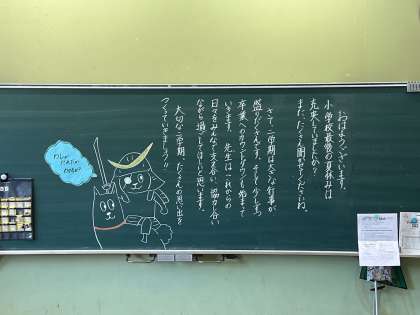 おはようございます。
小学校最後の夏休みは
充実していましたか？
また、たくさん聞かせてくださいね。
さて、二学期は大きな行事が
盛りだくさんです。そして少しずつ
卒業へのカウントダウンも始まって
いきます。先生はこれからの
日々をみんなで支え合い、協力し合い
ながら過ごしてほしいと思います。
大切な二学期、たくさんの思い出を
つくっていきましょう♪